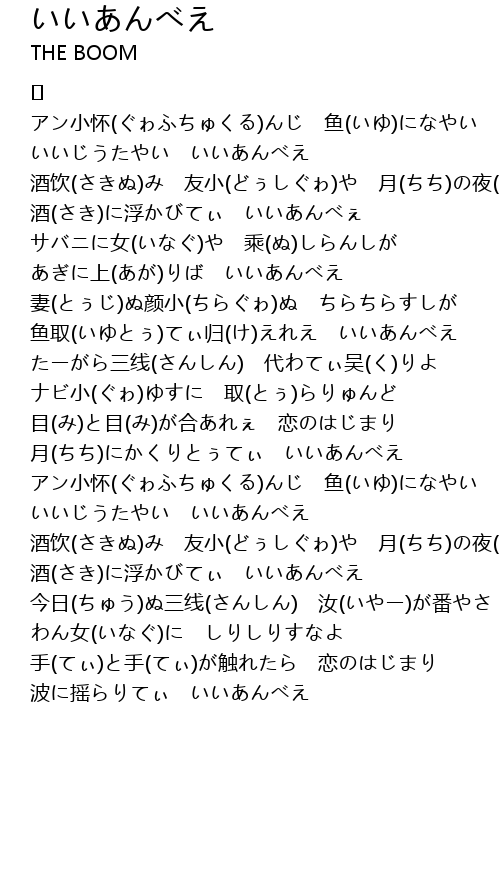 いいあんべえ
THE BOOM
アン小怀(ぐゎふちゅくる)んじ　鱼(いゆ)になやい
いいじうたやい　いいあんべえ
酒饮(さきぬ)み　友小(どぅしぐゎ)や　月(ちち)の夜(
酒(さき)に浮かびてぃ　いいあんべぇ
サバニに女(いなぐ)や　乘(ぬ)しらんしが
あぎに上(あが)りば　いいあんべえ
妻(とぅじ)ぬ颜小(ちらぐゎ)ぬ　ちらちらすしが
鱼取(いゆとぅ)てぃ归(け)えれえ　いいあんべえ
たーがら三线(さんしん)　代わてぃ吴(く)りよ
ナビ小(ぐゎ)ゆすに　取(とぅ)らりゅんど
目(み)と目(み)が合あれぇ　恋のはじまり
月(ちち)にかくりとぅてぃ　いいあんべえ
アン小怀(ぐゎふちゅくる)んじ　鱼(いゆ)になやい
いいじうたやい　いいあんべえ
酒饮(さきぬ)み　友小(どぅしぐゎ)や　月(ちち)の夜(
酒(さき)に浮かびてぃ　いいあんべえ
今日(ちゅう)ぬ三线(さんしん)　汝(いやー)が番やさ
わん女(いなぐ)に　しりしりすなよ
手(てぃ)と手(てぃ)が触れたら　恋のはじまり
波に摇らりてぃ　いいあんべえ